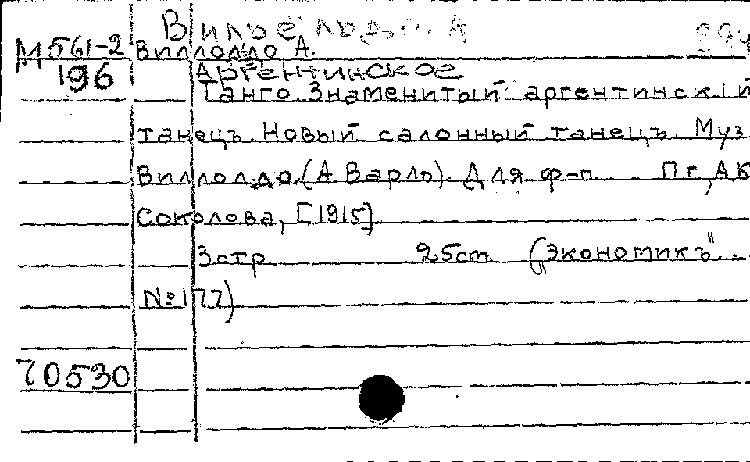 М561-2 Виллолдо А.
196 Аргентинское
Танго. Знаменитый аргентинскiй
танецъ. Новый салонный танецъ. Муз
Виллолдо (А. Варло). Для ф-п. Пг, АК
Соколова, [1915]
3стр 25cm ("Экономикъ"
№177)
70530